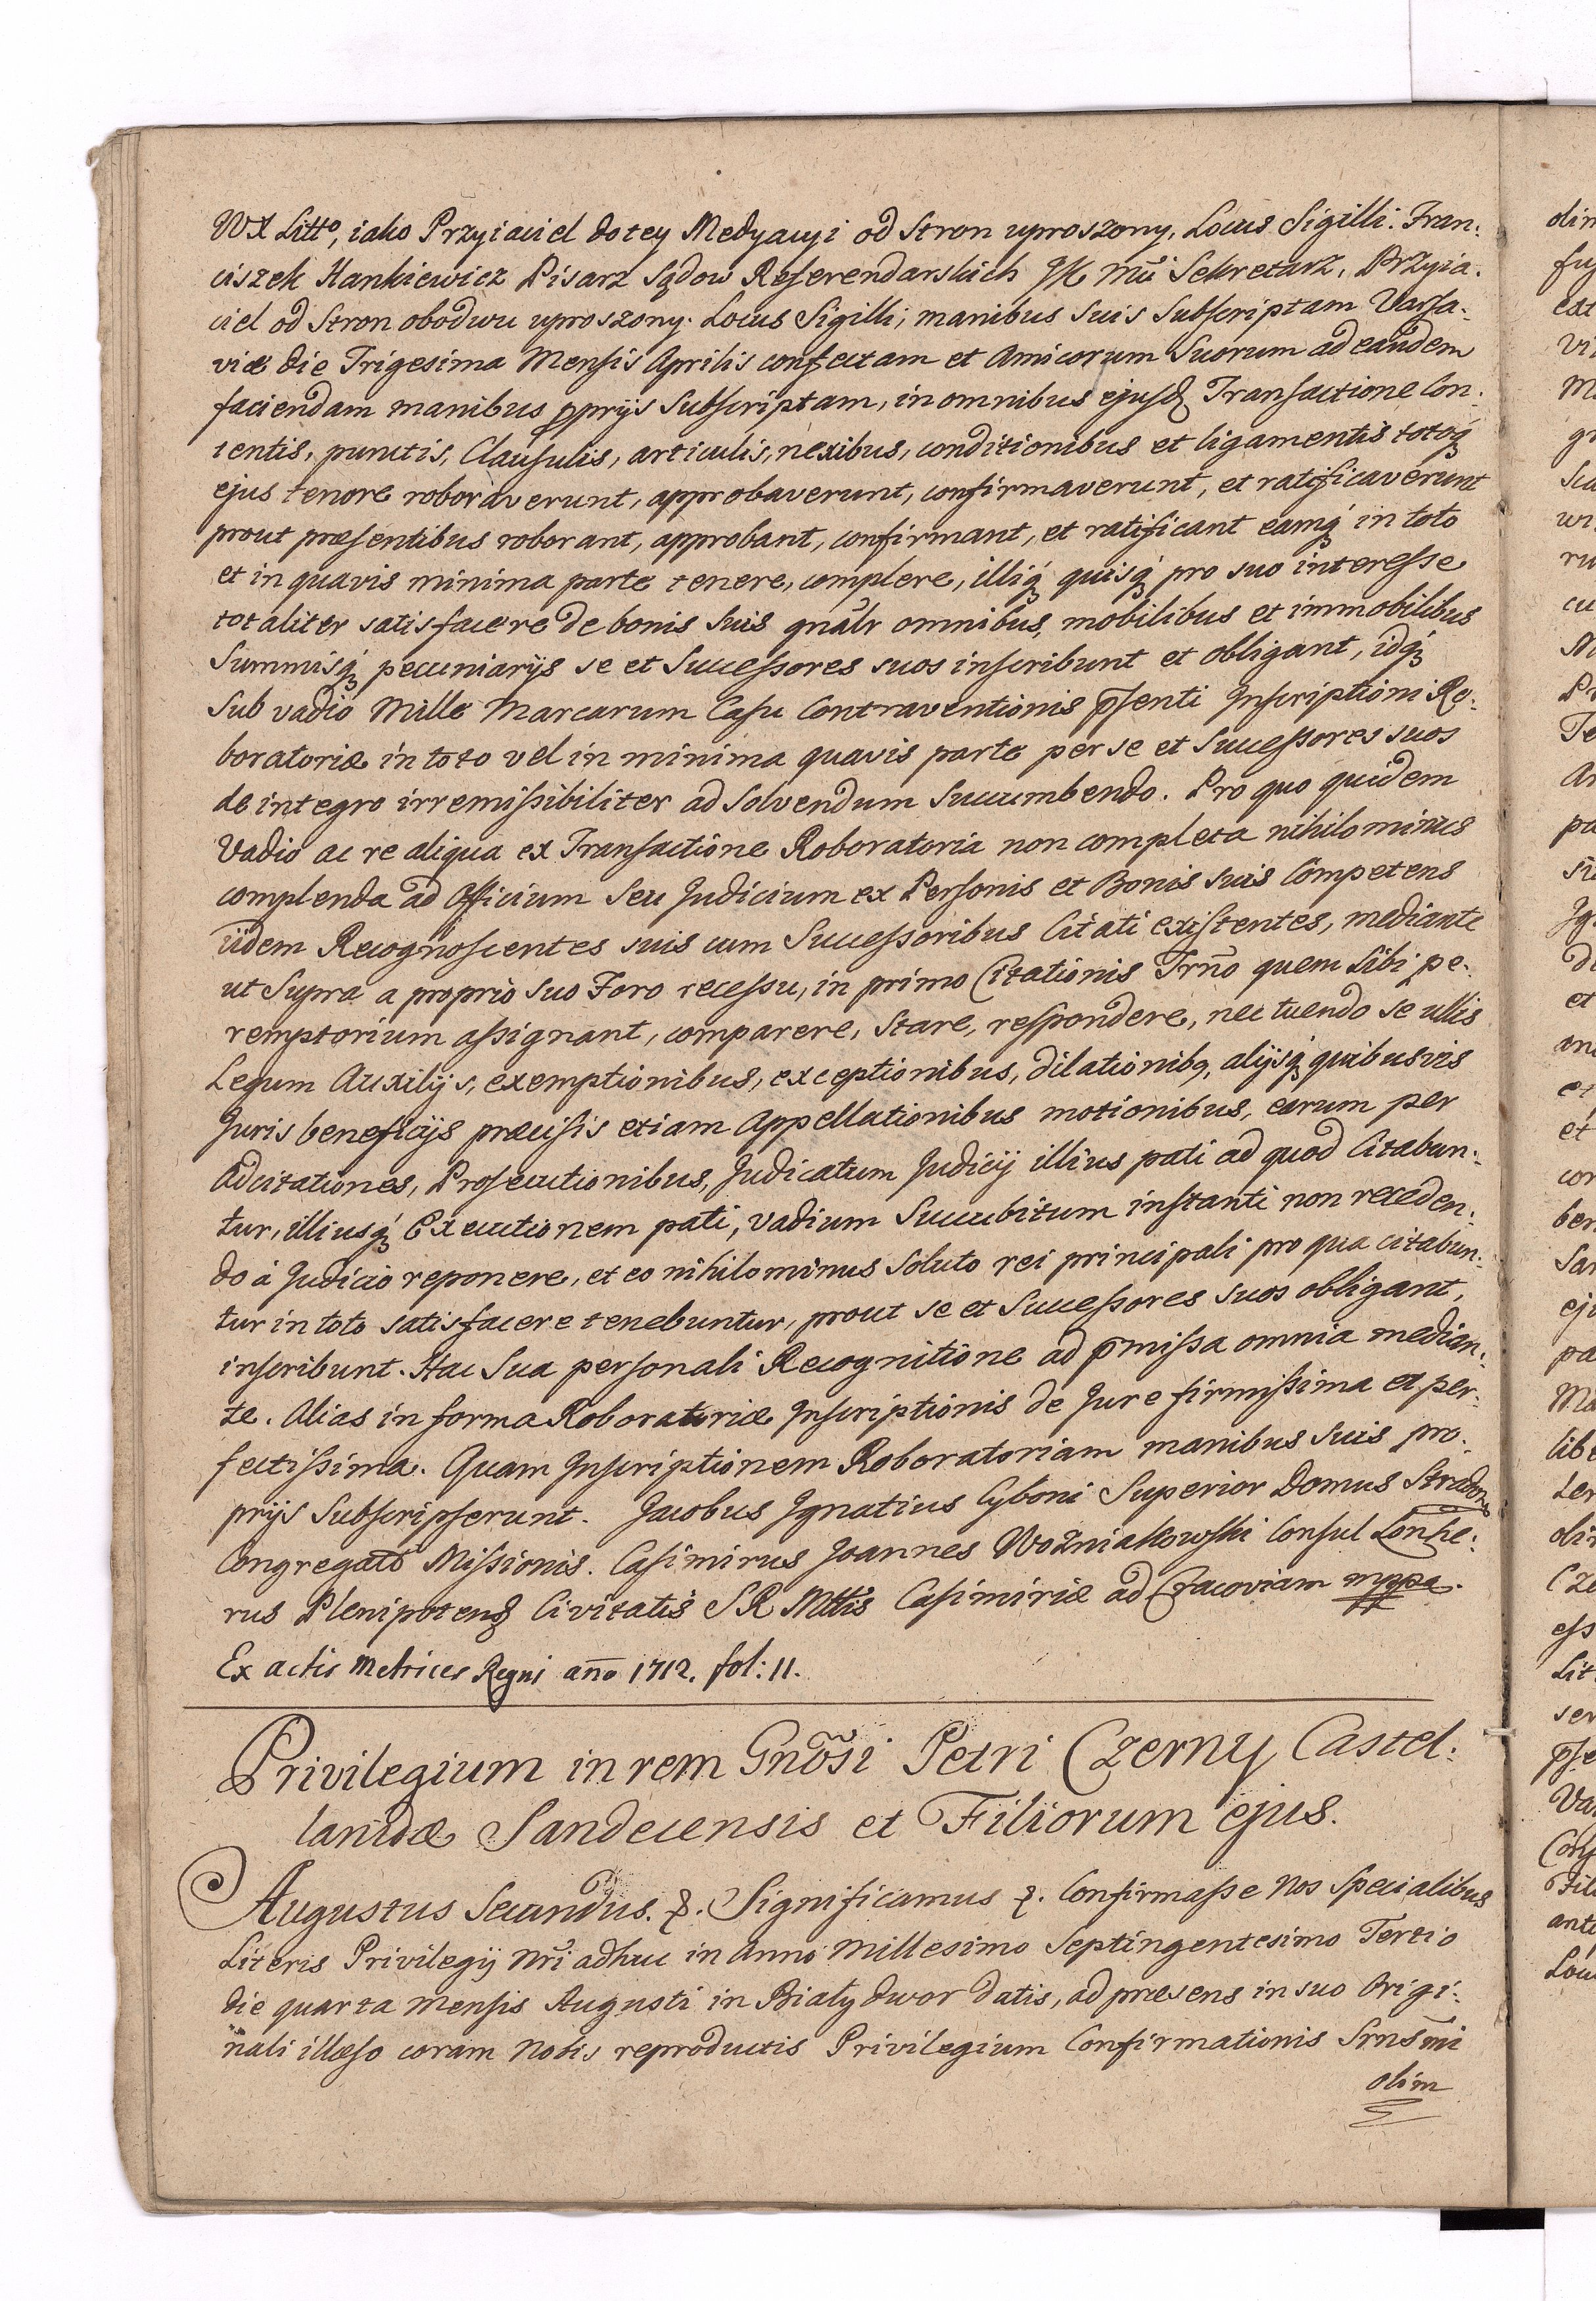 WX Litto, iako Przyiaciel do tey Medyacyi od Stron uproszony, Locus Sigilli. Fran:
ciszek Hankiewicz Pisarz Sądow Referendarskich JK Mći Sekretarz, Przyia:
ciel od Stron obodwu uproszony. Locus Sigilli; manibus suis Subscriptam Varsa:
viæ die Trigesima Mensis Aprilis confectam et Amicorum Suorum ad eandem
faciendam manibus pprijs Subscriptam, in omnibus ejusd Transactione Con:
tentis, punctis, Clausulis, articulis, nexibus, conditionibus et ligamentis totoq
ejus tenore roboraverunt, approbaverunt, confirmaverunt, et ratificaverunt
prout præsentibus roborant, approbant, confirmant, et ratificant eamq in toto
et in quavis minima parte tenere, complere, illiq quisq pro suo interesse
totaliter satisfacere de bonis suis gnalr omnibus, mobilibus et immobilibus
Summisq pecuniarijs se et Successores suos inscribunt et obligant, idq
Sub vadio Mille Marcarum Casu Contraventionis psenti Inscriptioni Ro:
boratoriæ in toto vel in minima quavis parte per se et Successores suos
de integro irremissibiliter ad solvendum Succumbendo. Pro quo quidem
Vadio ac re aliqua ex Transactione Roboratoria non completa nihilominus
complenda ad Officium Seu Judicium ex Personis et Bonis suis Competens
iidem Recognoscentes suis cum Successoribus Citati existentes, mediante
ut Supra a proprio suo Foro recessu, in primo Citationis Trno quem Sibi pe:
remptorium assignant, comparere, Stare, respondere, nec tuendo se ullis
Legum Auxilijs, exemptionibus, exceptionibus, dilationibq, alijsq quibusvis
Juris beneficijs præcisis etiam Appellationibus motionibus, earum per
Adcitationes, Prosecutionibus, Judicatum Judicij illius pati ad quod Citabun:
tur, illiusq Executionem pati, vadium Succubitum instanti non receden:
do à Judicio reponere, et eo nihilominus Soluto rei principali pro qua citabun:
tur in toto satisfacere tenebuntur, prout se et Successores suos obligant,
inscribunt. Hac Sua personali Recognitione ad pmissa omnia median:
te. Alias in forma Roboratoriæ Inscriptionis de Jure firmissima et per:
fectissima. Quam Inscriptionem Roboratoriam manibus suis pro:
prijs Subscripserunt. Jacobus Ignatius Cyboni Superior Domus Stradom
Congregato Missionis. Casimirus Joannes Wozniakowski Consul Lonhe:
rus Plenipotens Civitatis SR Mttis Casimiriæ ad Cracoviam mppa.
Ex actis Metrices Regni anno 1712. fol: 11.
Privilegium in rem Gnosi Petri Czerny Castel:
lanidæ Sandecensis et Filiorum ejus.
Augustus Secundus. &. Significamus &. Confirmasse Nos Specialibus
Literis Privilegij Nri adhuc in Anno Millesimo Septingentesimo Tertio
die quarta Mensis Augusti in Biały dwor datis, ad præsens in suo Origi:
nali illæso coram Nobis reproductis Privilegium Confirmationis Srnsmi
olim